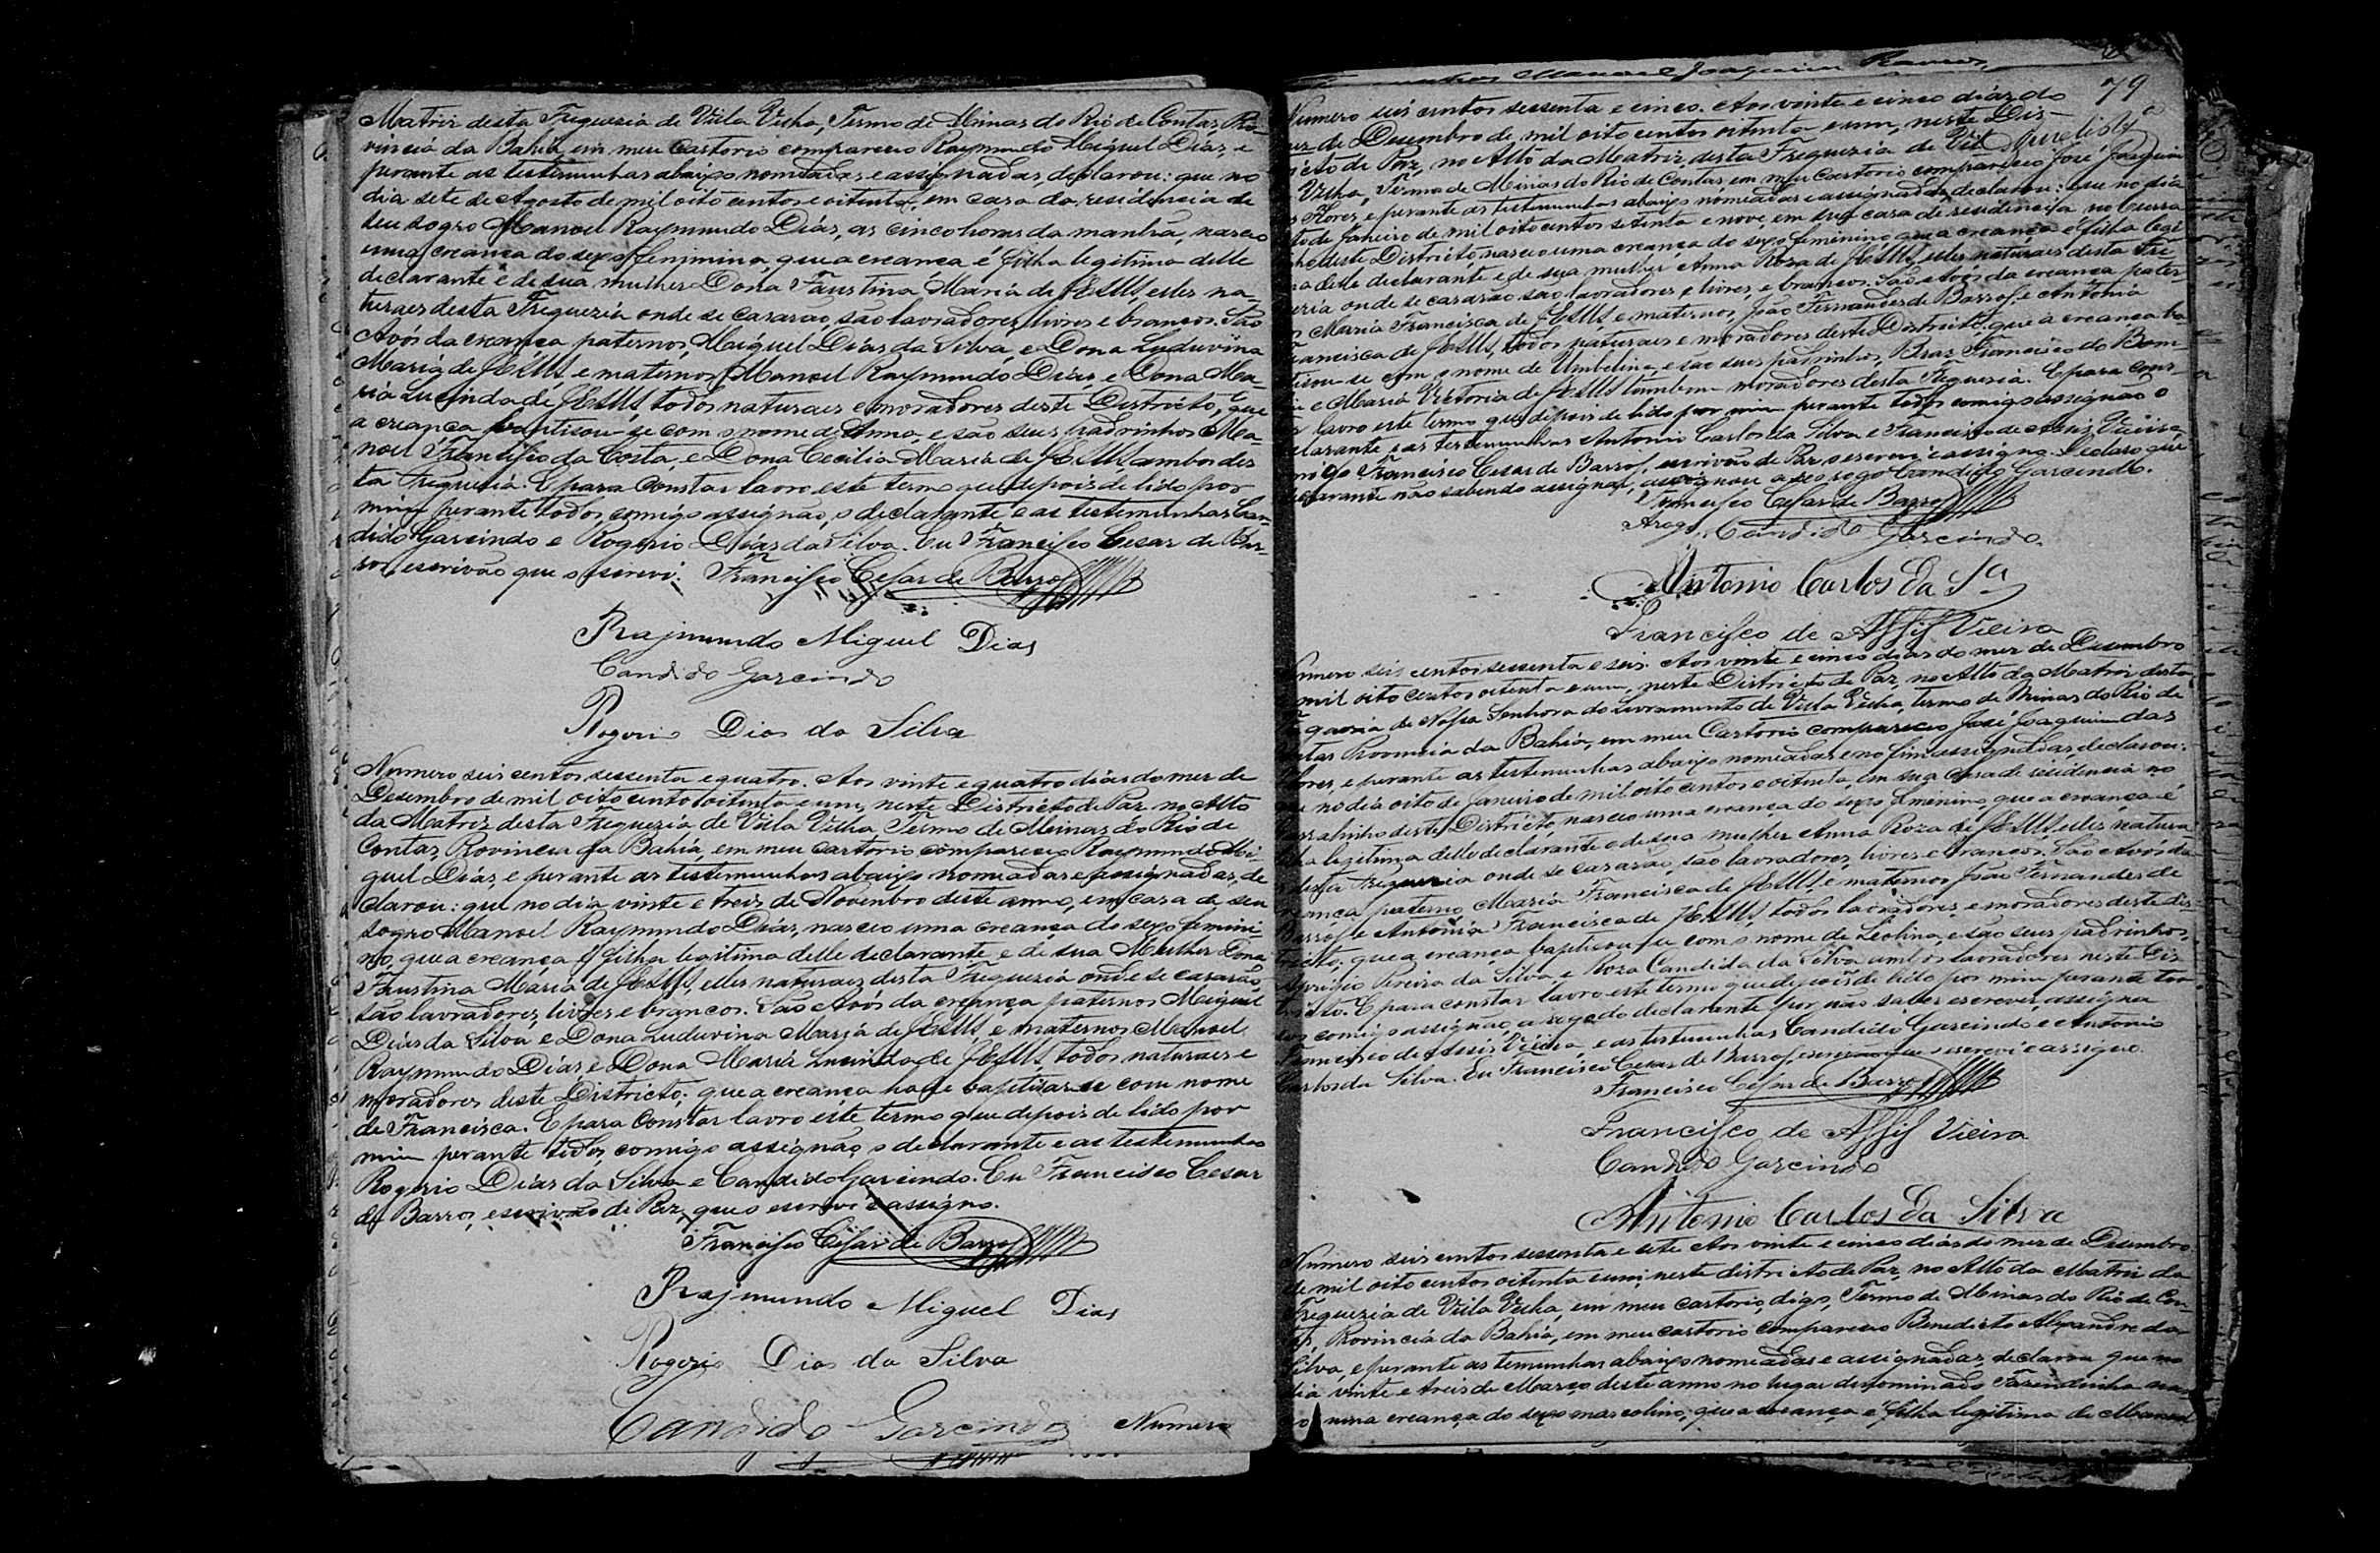 Matriz desta Freguezia de Villa Velha, Termo de Minas do Rio de Contas, Pro-
vincia da Bahia, em meu Cartorio compareceo Raymundo Miguel Dias, e
perante as testemunhas abaixo nomeadas e assignadas, declarou: que no
dia sete de Agosto de mil oito centos e oitenta, em casa da residencia de
seu sogro Manoel Raymundo Dias, as cinco horas da manhã, nasceo
uma creança do sexo feminino, que a creança é filha legitima delle
declarante e de sua mulher Dona Faustina Maria de JESUS, elles na-
turaes desta Freguezia onde se casarão, são lavradores, livres e brancos. São
Avós da creança paternos, Miguel Dias da Silva, e Dona Luduvina
Maria de JESUS e maternos Manoel Raymundo Dias e Dona Ma-
ria Lucinda de JESUS todos naturaes e moradores deste Districto, que
a creança baptisou-se com o nome de Anna, e são seus padrinhos Ma-
noel Francisco da Costa, e Dona Cecilia Maria de JESUS ambos des
ta Freguezia. E para Constar lavro este termo que depois de lido por
mim perante todos, comigo assignão, o declarante e as testemunhas Can-
dido Garcindo e Rogerio Dias da Silva. Eu Francisco Cesar de Bar-
ros, escrivão que o escrevi. Francisco Cesar de Barros
Raymundo Miguel Dias
Candido Garcindo
Rogerio Dias da Silva
Numero seis centos sessenta e quatro. Aos vinte e quatro dias do mez de
Desembro de mil oito centos oitenta e um, neste Districto de Paz, no Alto
da Matriz desta Freguezia de Villa Velha, Termo de Minas do Rio de
Contas, Provincia da Bahia, em meu cartorio compareceo Raymundo Mi-
guel Dias, e perante as testemunhas abaixo nomeadas e assignadas, de
clarou: que no dia vinte e treis de Novembro deste anno, em casa de seu
sogro Manoel Raymundo Dias, nasceo uma creança do sexo femini-
no, que a creança é filha legitima delle declarante e de sua Mulher Dona
Faustina Maria de JESUS, elles naturaes desta Freguezia onde se casarão,
são lavradores, livres e brancos. São Avós da creança paternos Miguel
Dias da Silva e Dona Luduvina Maria de JESUS, e maternos Manoel
Raymundo Dias e Dona Maria Lucinda de JESUS, todos naturaes e
moradores deste Districto; que a creança ha de baptisar-se com nome
de Francisca. E para Constar lavro este termo que depois de lido por
mim perante todos, comigo assignão o declarante e as testemunhas
Rogerio Dias da Silva e Candido Garcindo. Eu Francisco Cesar
de Barros, escrivão de Paz, que o escrevi e assigno.
Francisco Cesar de Barros
Raymundo Miguel Dias
Rogerio Dias da Silva
Candido Garcindo Numero
Manoel Joaquim Ramos
79
Numero seis centos sessenta e cinco. Aos vinte e cinco dias do
mez de Desembro de mil oito centos oitenta e um, neste Dis-
tricto de Paz, no Alto da Matriz desta Freguezia de Vil
Velha, Termo de Minas do Rio de Contas, em meu Cartorio compareceo José Joaquim
Flores, e perante as testemunhas abaixo nomeadas e assignadas, declarou: que no dia
de Janeiro de mil oito centos setenta e nove, em sua casa de residencia no Curra
deste Districto, nasceo uma creança do sexo feminino que a creança é filha legi
delle declarante e de sua mulher Anna Roza de JESUS, elles naturaes desta Fre
onde se casarão são lavradores, livres, e brancos. São Avós da creança pater-
Maria Francisca de JESUS, e maternos, João Fernandes de Barros, e Antonia
Francisca de JESUS, todos naturaes e moradores deste Districto. que a creança ba-
tisou-se com o nome de Umbelina, e são seus padrinhos, Braz Francisco do Bom
e Maria Victoria de JESUS tambem moradores desta Freguezia. E para Cons-
lavro este termo que depois de lido por mim perante todos comigo assignão o
declarante e as testemunhas Antonio Carlos da Silva e Francisco de Assis Vieira
Francisco Cesar de Barros, escrivão de Paz, o escrevi e assigno. Declaro que
declarante não sabendo assignar, assignou a seo rogo Candido Garcindo.
Francisco Cesar de Barros
Arogo, Candido Garcindo.
Antonio Carlos da Sª
Francisco de Assis Vieira
Numero seis centos sessenta e seis. Aos vinte e cinco dias do mez de Desembro
mil oito centos oitenta e um, neste Districto de Paz, no Alto da Matriz desta
Freguezia de Nossa Senhora do Livramento de Villa Velha, termo de Minas do Rio de
Contas Provincia da Bahia, em meu Cartorio compareceo José Joaquim das
Flores, e perante as testemunhas abaixo nomeadas e no fim assignadas, declarou:
no dia oito de Janeiro de mil oito centos e oitenta, em sua casa de residencia no
Curralinho deste Districto, nasceo uma creança do sexo feminino, que a creança é
filha legitima delle declarante e de sua mulher Anna Roza de JESUS elles natura
desta Freguezia onde se casarão, são lavradores, livres e brancos. São Avós da
creança paterno, Maria Francisca de JESUS, e maternos João Fernandes de
Barros, e Antonia Francisca de JESUS, todos lavradores, e moradores deste dis-
tricto, que a creança baptisou-se com o nome de Leolina, e são seus padrinhos,
Pereira da Silva, e Roza Candida da Silva ambos lavradores neste Dis
tricto. E para constar lavro este termo que depois de lido por mim perante to-
dos comigo assignão, a rogo do declarante por não saber escrever, assigna
Francisco de Assis Vieira, e as testemunhas Candido Garcindo e Antonio
Carlos da Silva. Eu Francisco Cesar de Barros, escrivão que o escrevi e assigno.
Francisco Cesar de Barros
Francisco de Assis Vieira
Candido Garcindo
Antonio Carlos da Silva
Numero seis centos sessenta e sete Aos vinte e cinco dias do mez de Desembro
de mil oito centos oitenta e um, neste districto de Paz, no Alto da Matriz da
Freguezia de Villa Velha, em meu cartorio, digo, Termo de Minas do Rio de Con-
tas, Provincia da Bahia, em meu cartorio compareceo Benedicto Alexandre da
Silva, e perante as temunhas abaixo nomeadas e assignadas, declarou que no
dia vinte e treis de Março deste anno no lugar denominado Fazendinha nas-
ceo uma creança do sexo mascolino, que a creança é filha legitima de Manoel